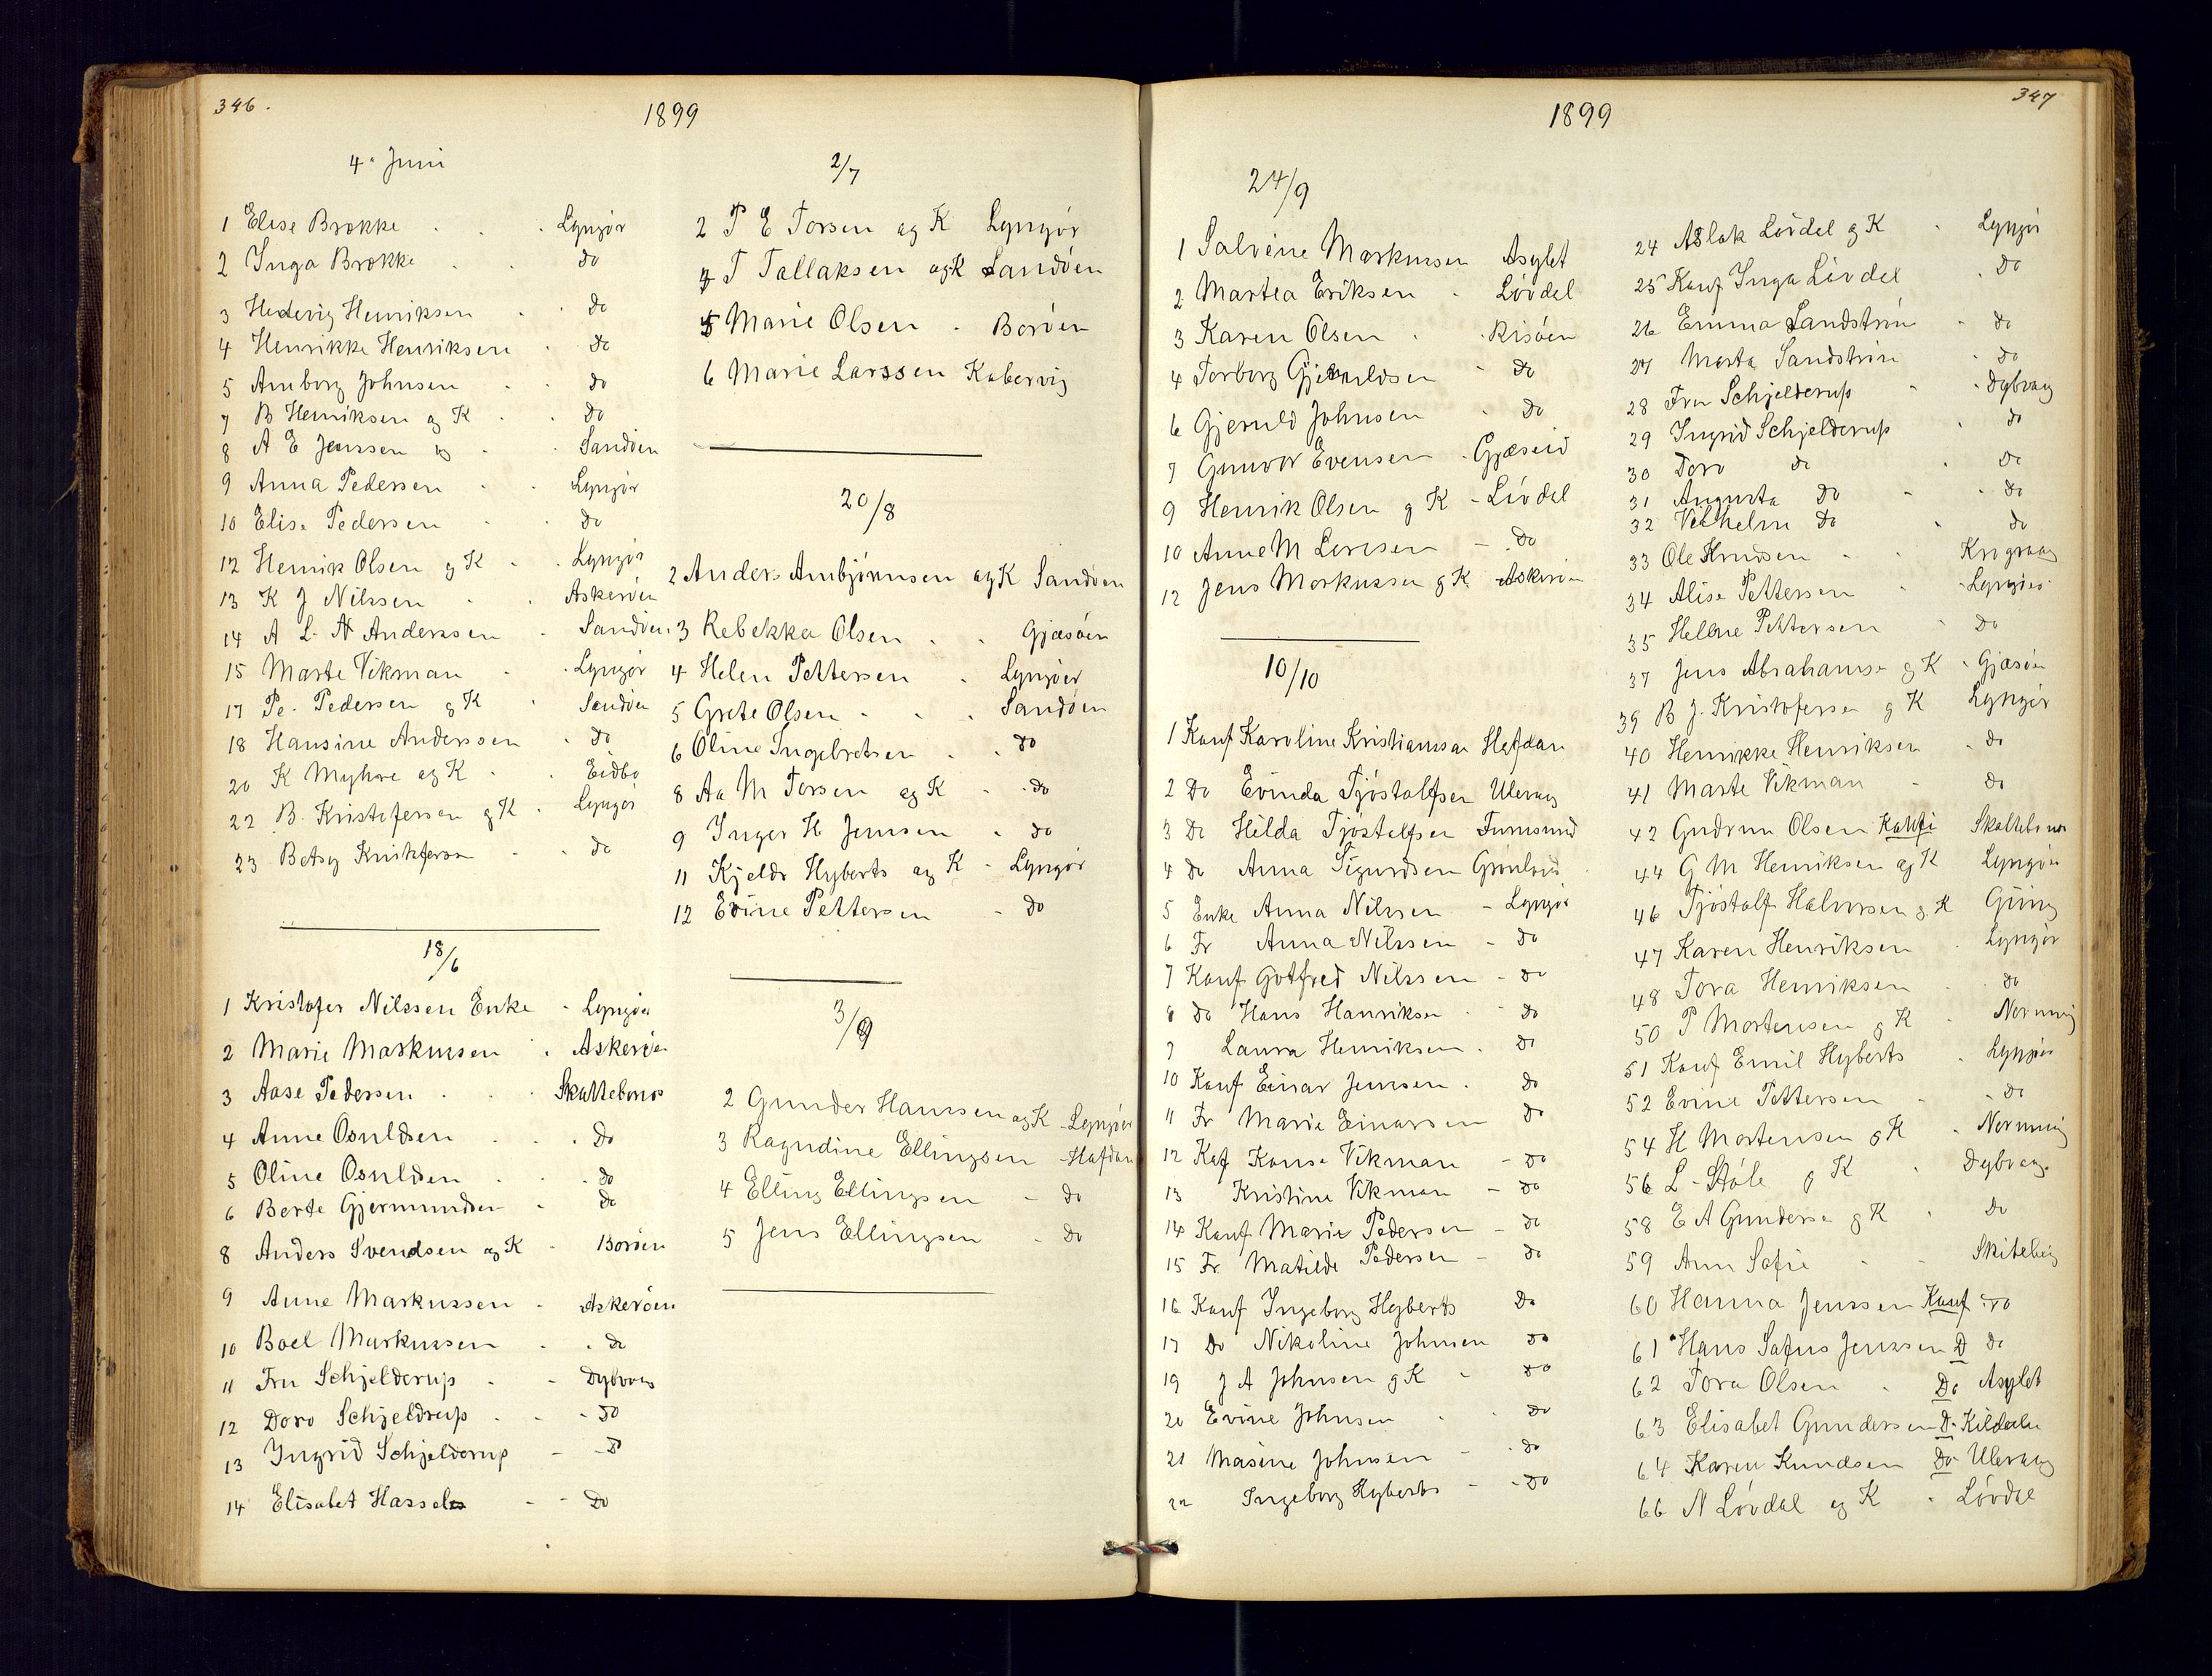 346.
1899
4. Juni
1 Elise Brække . . . Lyngør
2 Inga Brække . . do
3 Hedevig Henriksen . . do
4 Henrikke Henriksen . do
5 Amborg Johnsen . . do
7 B Henriksen og K . do
8 A E Jenssen og . . Sandöen
9 Anna Pedersen . . Lyngör
10 Elise Pedersen . . do
12 Henrik Olsen og K . . Lyngör
13 K J Nilssen . . Askeröen
14 A L. N Anderssen . Sandöen
15 Marte Vikman . . Lyngör
17 Pe. Pedersen og K . Sandöen
18 Hansine Anderssen . do
20 K Myhre og K . . Eidbo
22 B. Kristofersen og K . Lyngör
23 Betsy Kristofersen . . do
18/6
1 Kristofer Nilssen Enke - Lyngör
2 Marie Markussen . Askeröen
3 Aase Pedersen . . Skattebonös
4 Anne Osuldsen . . . Do
5 Oline Osuldsen . . . do
6 Berte Gjermundsen . do
8 Anders Svendsen og K - Boröen
9 Anne Markussen - Askeröen
10 Boel Markussen . . do
11 Fru Schjelderup . - Dybvaag
12 Doro Schjeldrup . . - do
13 Ingrid Schjelderup - - D
14 Elisabet Hassel - - Do
2/7
2 P E Torsen og K Lyngör
4 T Tallaksen og K Sandöen
5 Marie Olsen . Boröen
6 Marie Larssen Kabervig
20/8
2 Anders Ambjörnsen og K Sandöen
3 Rebekka Olsen . . Gjæsöen
4 Helen Pettersen . Lyngöer
5 Grete Olsen . . . Sandöen
6 Oline Ingebretsen . . do
8 Aa M Torsen og K - . do
9 Inger H Jensen . do
11 Kjeldr Hyberts og K - Lyngör
12 Evine Pettersen - do
3/9
2 Gunder Hanssen og K - Lyngöer
3 Ragndine Ellingsen - Hafdan
4 Elling Ellingsen - do
5 Jens Ellingsen - do
347
1899
24/9
1 Salvine Markussen Asylet
2 Martea Eriksen . Lövdal
3 Karen Olsen . . Risöen
4 Torborg Gjeruldsen - do
6 Gjeruld Johnsen . do
7 Gunvor Evensen . Gjæseid
9 Henrik Olsen og K - Lövdal
10 Anne M Loresen - . do
12 Jens Markussen og K Askeröen
10/10
1 Konf Karoline Kristianssen Hafdan
2 Do Evinda Tjöstolfsen Ulevaag
3 Do Hilda Tjöstolfsen Furusund
4 do Anna Sigurdsen Grönland
5 Enke Anna Nilssen - Lyngör
6 Fr Anna Nilssen - do
7 Konf Gotfred Nilssen - do
8 do Hans Hanriksen . - do
9 Laura Henriksen . do
10 Konf Einar Jenssen . do
11 Fr Marie Einarssen do
12 Kof Kanse Vikman - do
13 Kristine Vikman - do
14 Konf Marie Pedersen - do
15 Fr. Matilde Pedersen - do
16 Konf Ingeborg Hyberts do
17 Do Nikoline Johnsen do
19 J A Johnsen og K - do
20 Evine Johnsen . . do
21 Masine Johnsen - . do
22 Ingeborg Hyberts - - do
24 Aslak Lövdal og K . Lyngör
25 Konf Inga Lövdal . do
26 Emma Sandström . do
27 Marta Sandström . do
28 Fru Schjelderup - . Dybvaag
29 Ingrid Schjelderup . do
30 Doro do . do
31 Augusta do - . do
32 Vilhelm do . do
33 Ole Knudsen . . Krogvaag
34 Alise Pettersen . Lyngör
35 Hellene Pettersen - do
37 Jens Abrahamse og K . Gjæsöen
39 B J. Kristofersen og K Lyngör
40 Henrikke Henriksen . do
41 Marte Vikman - do
42 Gudrun Olsen Konfi Skattebonös
44 G M Henriksen og K Lyngör
46 Tjöstolf Halvorsen og K Giing
47 Karen Henriksen . Lyngör
48 Tora Henriksen . do
50 P Mortensen og K . Norming
51 Konf Emil Hyberts . Lyngör
52 Evine Pettersen - . do
54 H Mortensen og K . Norming
56 L - Ståle og K . Dybvaag
58 E A Gundersen og K . do
59 Ann Sofie . - Skitebeig
60 Hanna Jenssen Konf do
61 Hans Sofus Jenssen D do
62 Tora Olsen . Do Asylet
63 Elisabet Gundersen D. Kildalen
64 Karen Knudsen Do Ulevaag
66 N Lövdal og K . Lövdal